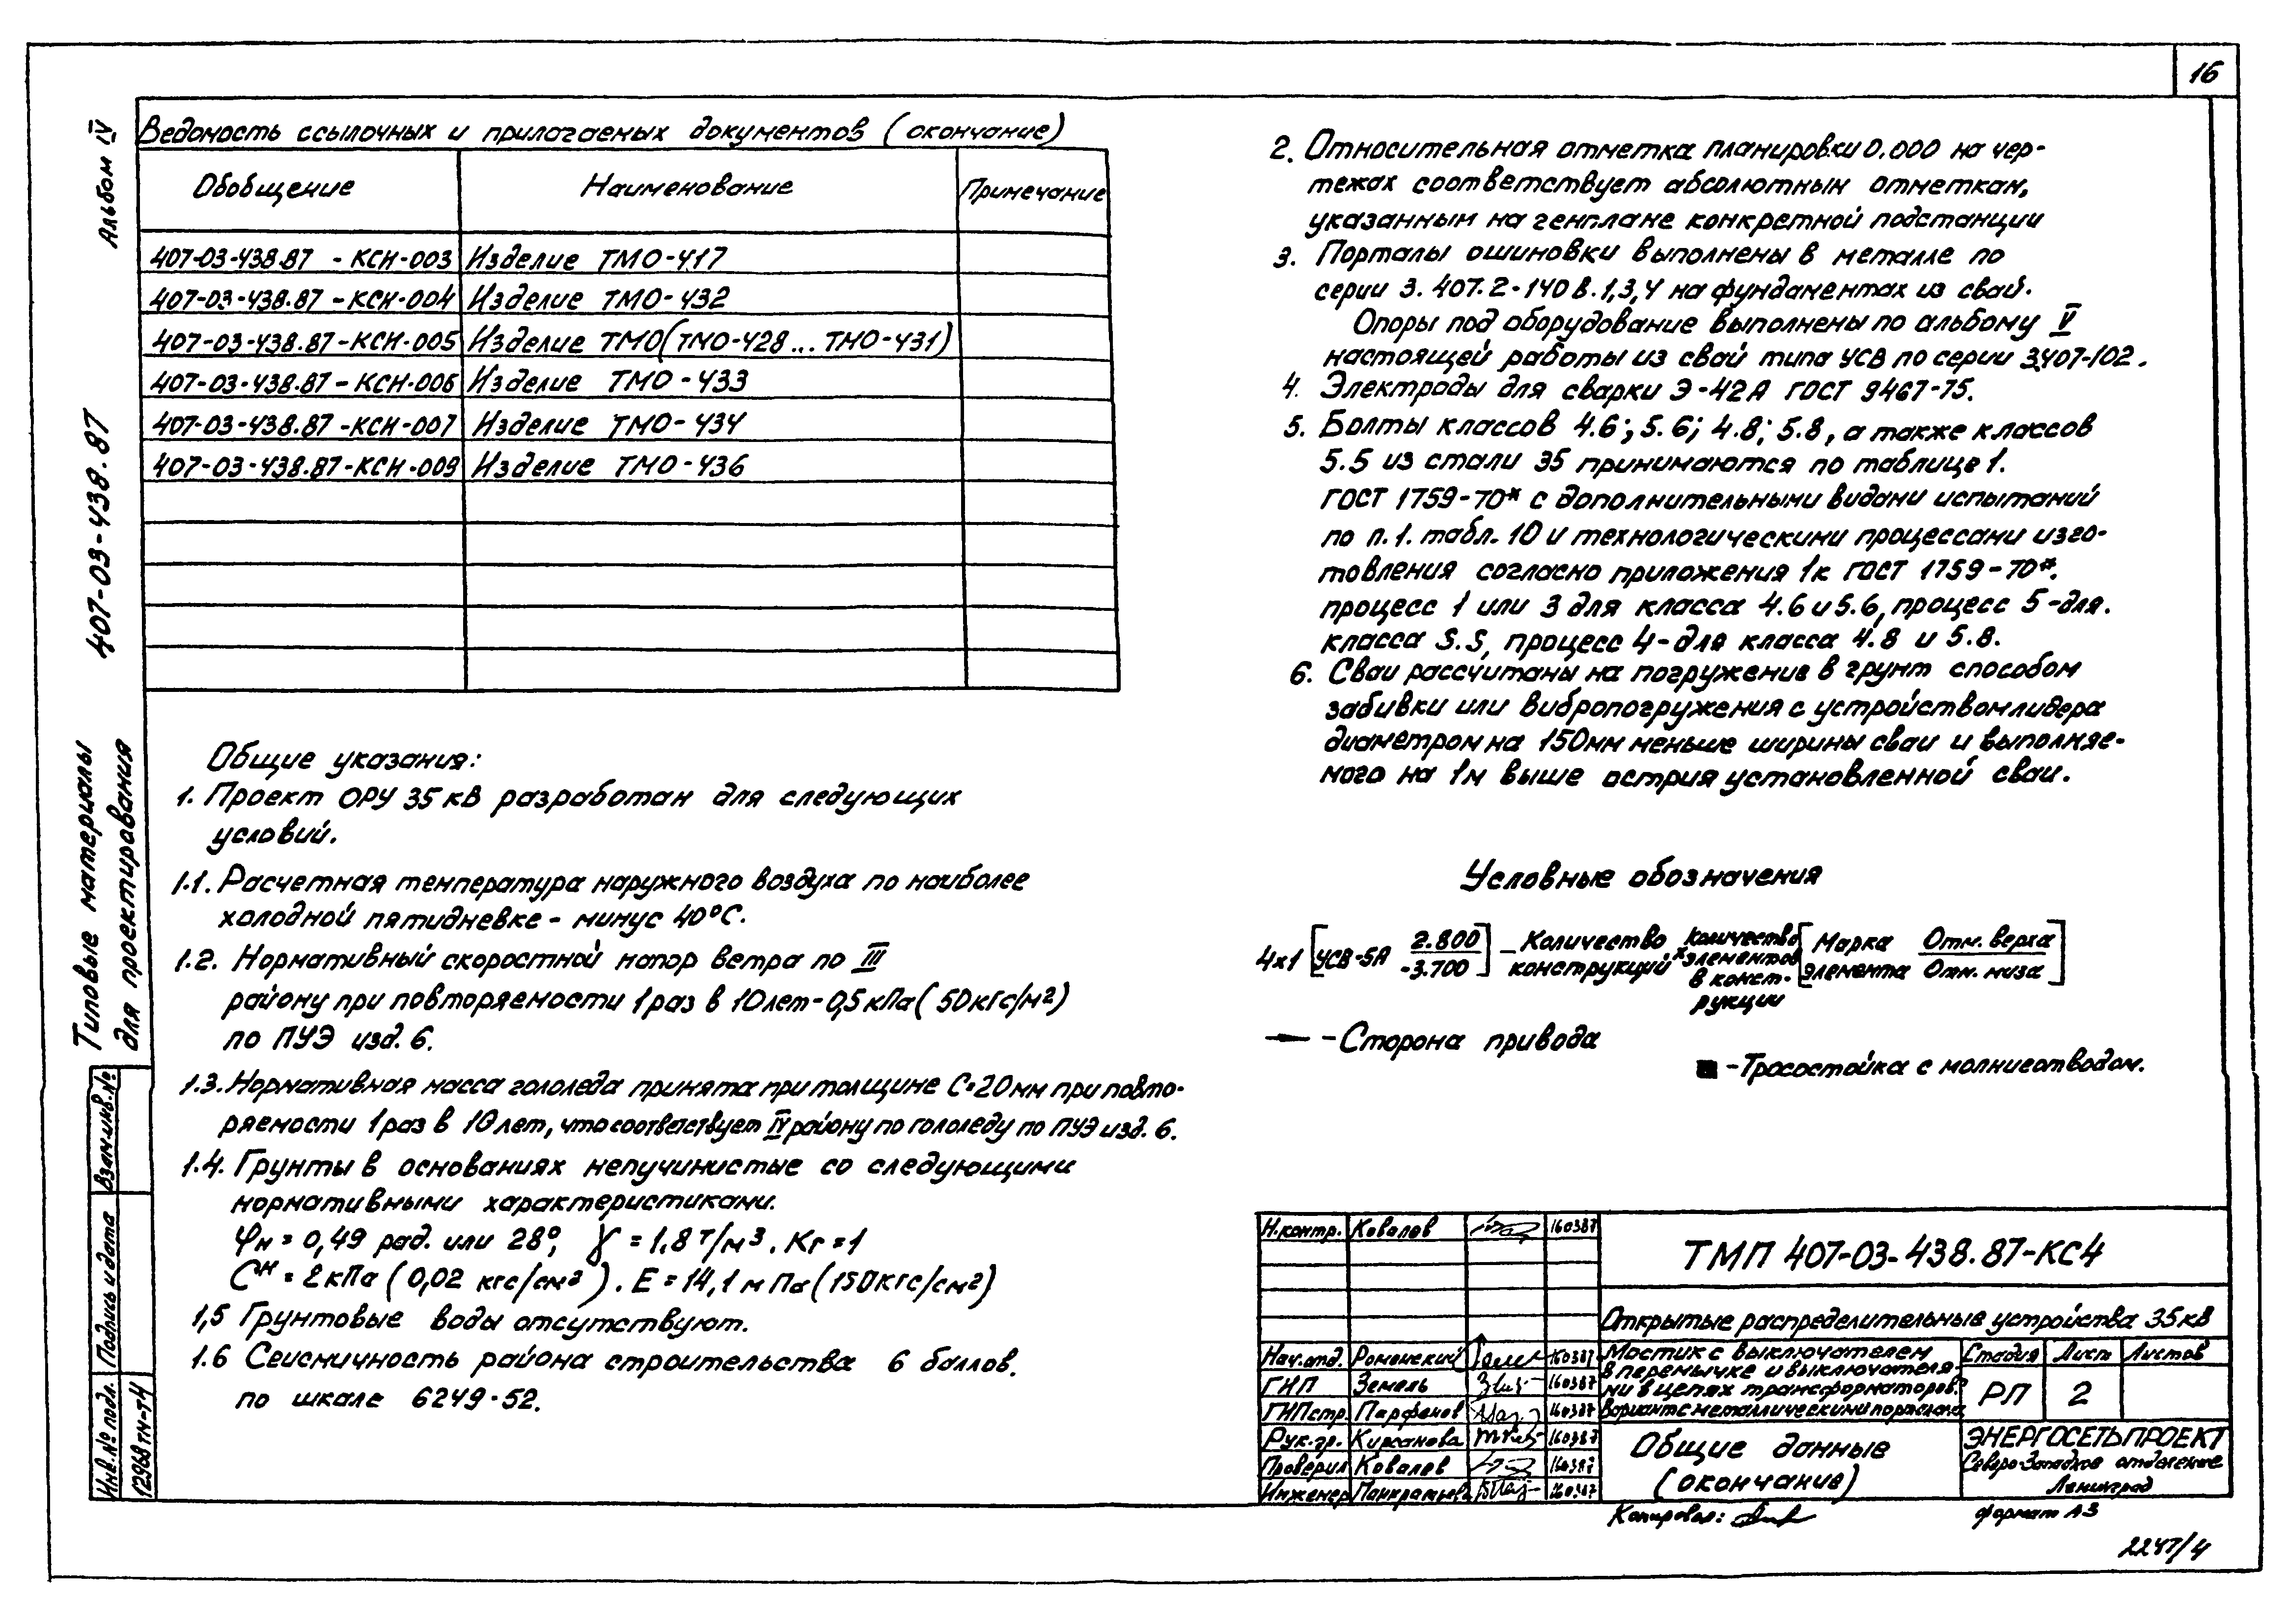 16
Альбом IV
407-03-438.87
Типовые материалы
для проектирования
Взам.инв.№
Подпись и дата
Инв.№ подл.
12968тм-т4
Ведомость ссылочных и прилагаемых документов (окончание)
Обобщение Наименование Примечание
407-03-438.87 - КСИ-003 Изделие ТМО-417
407-03-438.87 - КСИ-004 Изделие ТМО-432
407-03-438.87-КСИ-005 Изделие ТМО(ТМО-428... ТМО-431)
407-03-438.87-КСИ-006 Изделие ТМО-433
407-03-438.87-КСИ-007 Изделие ТМО-434
407-03-438.87-КСИ-009 Изделие ТМО-436
Общие указания:
1. Проект ОРУ 35кВ разработан для следующих
условий.
1.1. Расчетная температура наружного воздуха по наиболее
холодной пятидневке - минус 40°С.
1.2. Нормативный скоростной напор ветра по III
району при повторяемости 1раз в 10лет-0,5кПа(50кгс/м²)
по ПУЭ изд. 6.
1.3. Нормативная масса гололеда принята при толщине С=20мм при повто-
ряемости 1раз в 10лет, что соответствует IV району по гололеду по ПУЭ изд. 6.
1.4. Грунты в основаниях непучинистые со следующими
нормативными характеристиками.
φн = 0,49 рад. или 28°, γ = 1,8 т/м³. Кг = 1
Сн = 2кПа (0,02 кгс/см²). Е = 14,1 мПа (150кгс/см²)
1,5 Грунтовые воды отсутствуют.
1.6 Сеисмичность района строительства 6 баллов.
по шкале 6249-52.
2. Относительная отметка планировки 0.000 на чер-
тежах соответствует абсолютным отметкам,
указанным на генплане конкретной подстанции
3. Порталы ошиновки выполнены в металле по
серии 3.407.2-140 в.1,3,4 на фундаментах из свай.
Опоры под оборудование выполнены по альбому V
настоящей работы из свай типа УСВ по серии 3.407-102.
4. Электроды для сварки Э-42А ГОСТ 9467-75.
5. Болты классов 4.6; 5.6; 4.8; 5.8, а также классов
5.5 из стали 35 принимаются по таблице 1.
ГОСТ 1759-70* с дополнительными видами испытаний
по п.1. табл. 10 и технологическими процессами изго-
товления согласно приложения 1к ГОСТ 1759-70*.
процесс 1 или 3 для класса 4.6 и 5.6, процесс 5-для.
класса S.S, процесс 4-для класса 4.8 и 5.8.
6. Сваи рассчитаны на погружение в грунт способом
забивки или вибропогружения с устройством лидера
диаметром на 150мм меньше ширины сваи и выполняе-
мого на 1м выше острия установленной сваи.
Условные обозначения
4х1 [УСВ-5А 2.800/-3.700] - Количество конструкций × количество элементов в конст-рукции [Марка элемента Отм. верха/Отм. низа]
- Сторона привода
- Тросостойка с молниеотводом.
Н.контр. Ковалев 160387
Нач.отд. Роменский 160387
ГИП Земель 160387
ГИПстр. Парфенов 160387
Рук.гр. Кирсанова 160387
Проверил Ковалев 160387
Инженер Панкратьева 160387
ТМП 407-03-438.87-КС4
Открытые распределительные устройства 35кВ
Мостик с выключателем
в перемычке и выключателя-
ми в цепях трансформаторов.
Вариант с металлическими порталами
Стадия Лист Листов
РП 2
Общие данные
(окончание)
ЭНЕРГОСЕТЬПРОЕКТ
Северо-Западное отделение
Ленинград
Копировал:
формат А3
2247/4